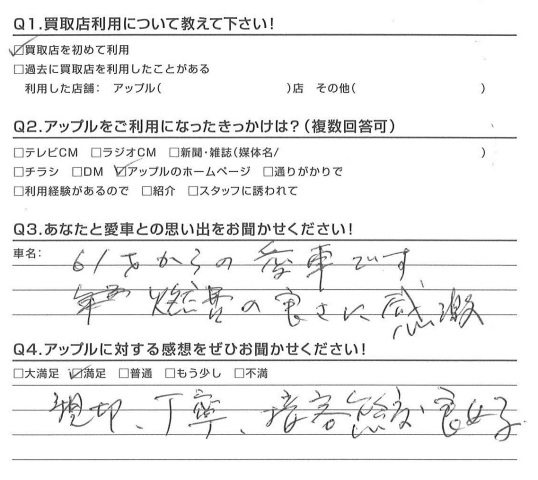 Q1.買取店利用について教えて下さい!
☑買取店を初めて利用
□過去に買取店を利用したことがある
利用した店舗: アップル( )店 その他( )
Q2.アップルをご利用になったきっかけは?(複数回答可)
□テレビCM □ラジオCM □新聞・雑誌(媒体名/ )
□チラシ □DM ☑アップルのホームページ □通りがかりで
□利用経験があるので □紹介 □スタッフに誘われて
Q3.あなたと愛車との思い出をお聞かせください!
車名: 61才からの愛車です
燃費の良さに感激
Q4.アップルに対する感想をぜひお聞かせください!
□大満足 ☑満足 □普通 □もう少し □不満
親切、丁寧、接客態度良好